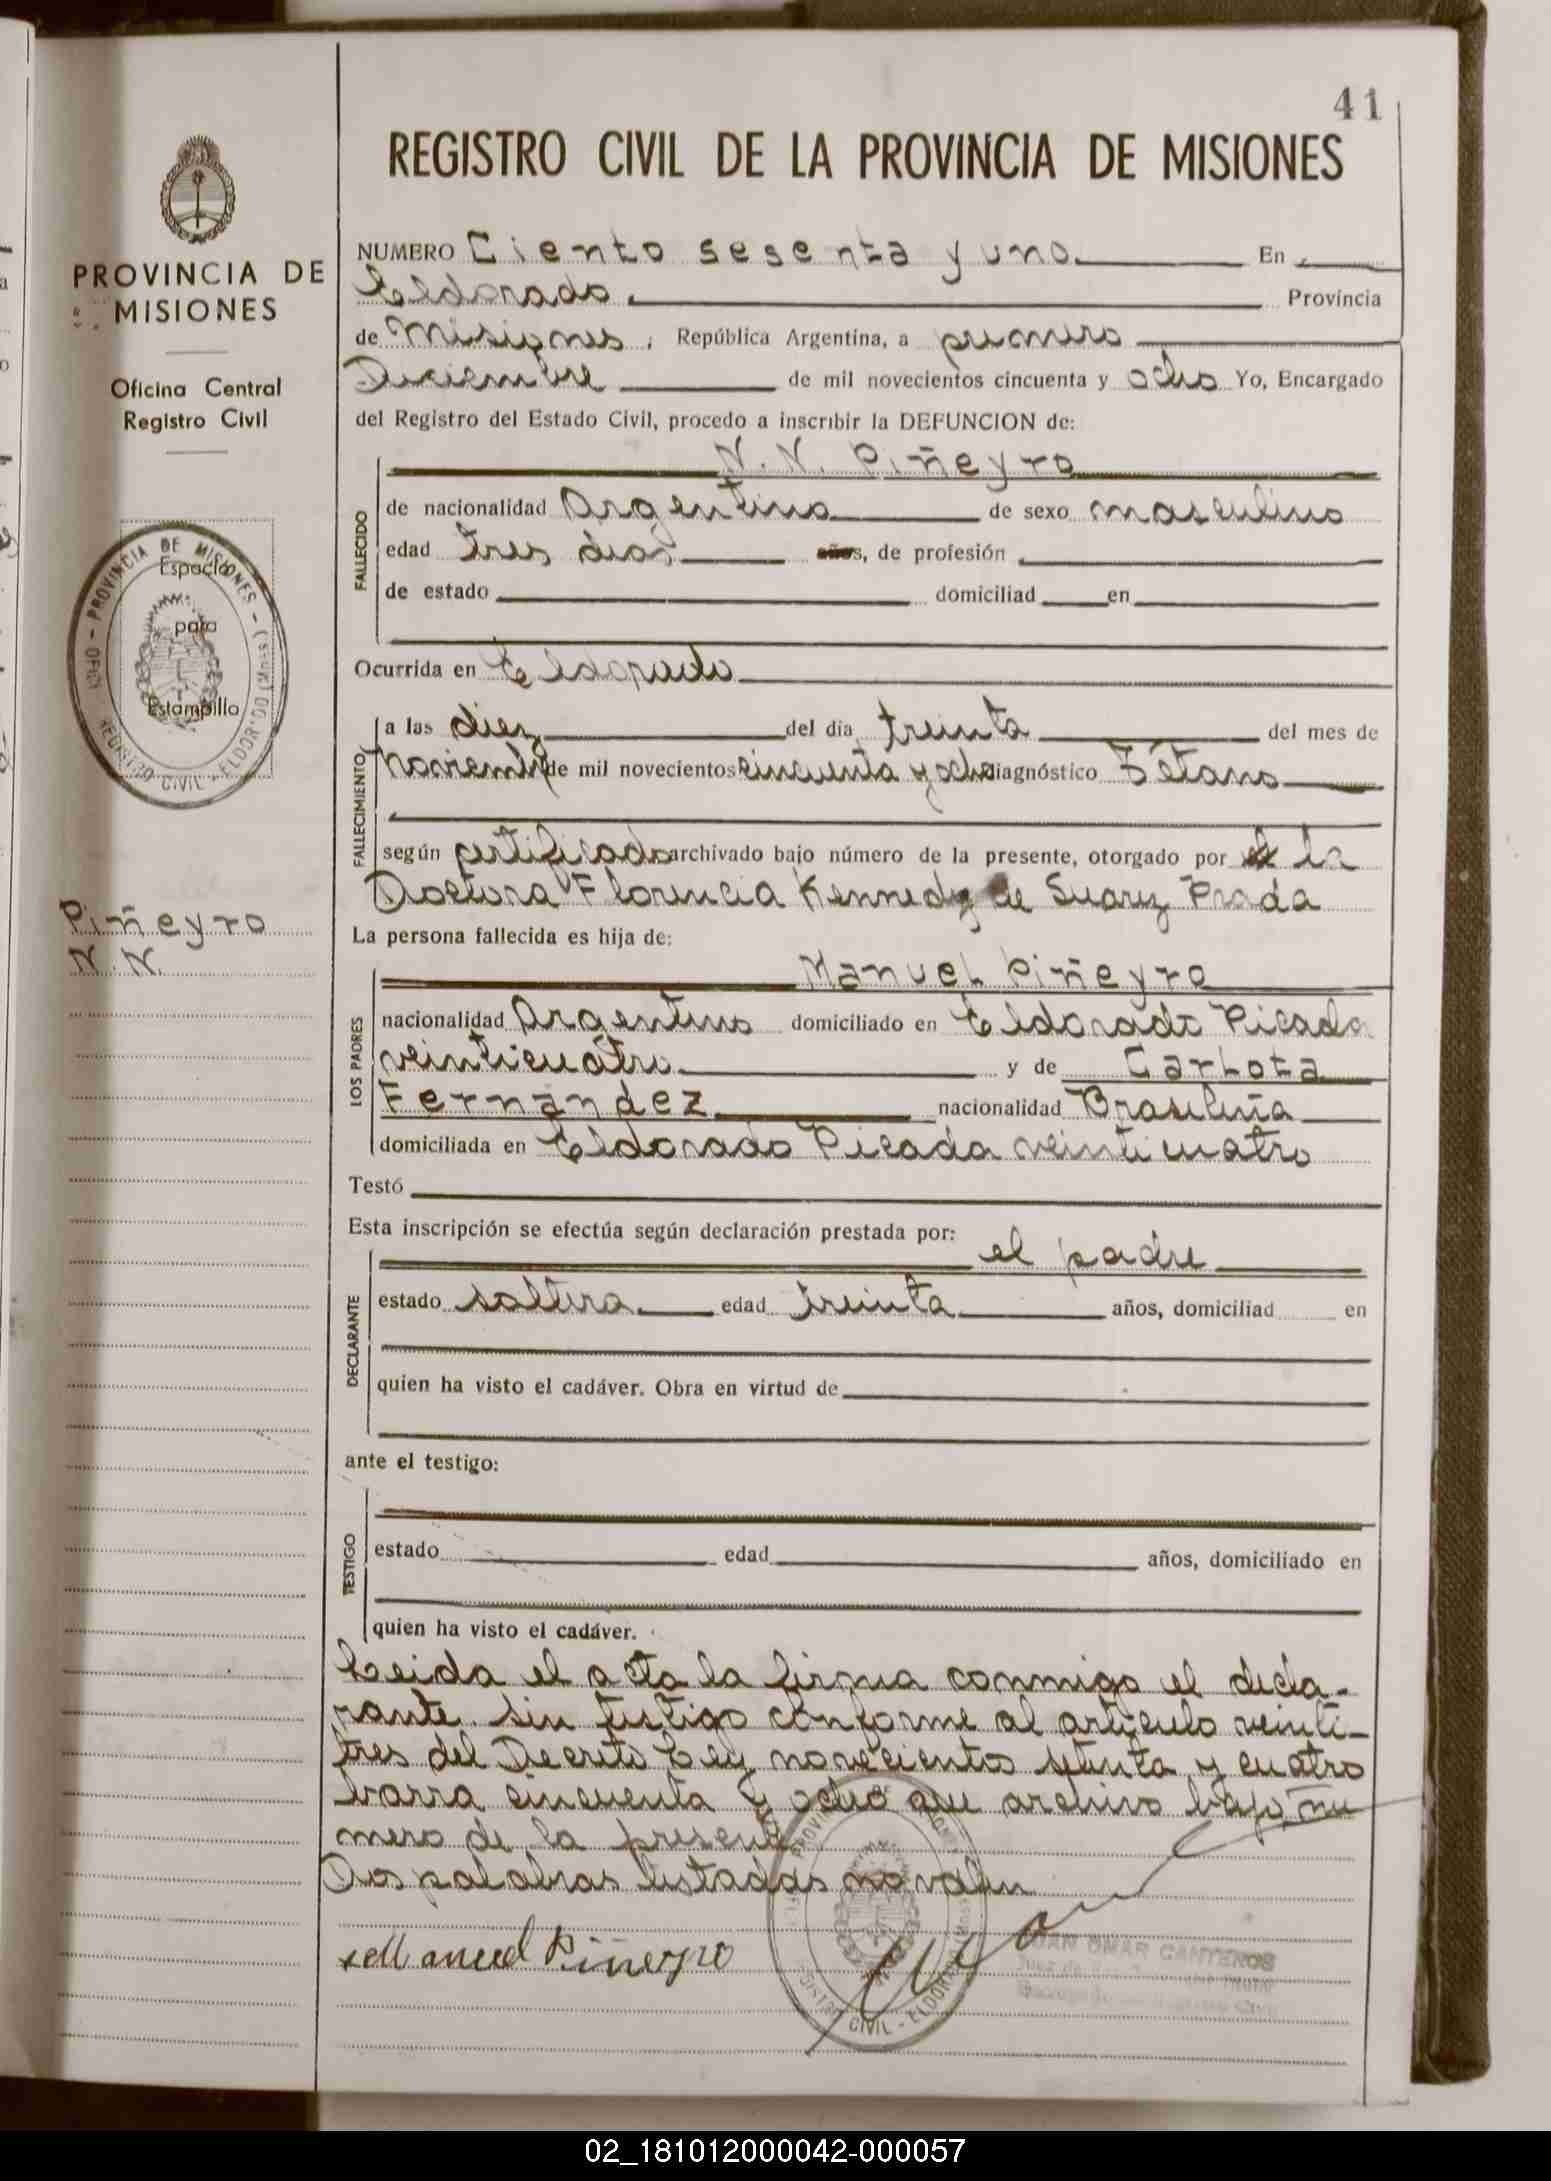 41
REGISTRO CIVIL DE LA PROVINCIA DE MISIONES
PROVINCIA DE
MISIONES
Oficina Central
Registro Civil
PROVINCIA DE MISIONES
REGISTRO CIVIL - ELDORADO
Espacio
para
Estampilla
Piñeyro
N. N.
NUMERO Ciento sesenta y uno En
Eldorado Provincia
de Misiones, República Argentina, a primero
Diciembre de mil novecientos cincuenta y ocho Yo, Encargado
del Registro del Estado Civil, procedo a inscribir la DEFUNCION de:
N. N. Piñeyro
FALLECIDO
de nacionalidad Argentino de sexo masculino
edad tres dias años, de profesión
de estado domiciliad en
Ocurrida en Eldorado
FALLECIMIENTO
a las diez del día treinta del mes de
Noviembre de mil novecientos cincuenta y ocho diagnóstico Tétano
según certificado archivado bajo número de la presente, otorgado por la
Doctora Florencia Kennedy de Suarez Prada
La persona fallecida es hija de:
LOS PADRES
Manuel Piñeyro
nacionalidad Argentino domiciliado en Eldorado Picada
veinticuatro y de Carlota
Fernández nacionalidad Brasileña
domiciliada en Eldorado Picada veinticuatro
Testó
Esta inscripción se efectúa según declaración prestada por:
el padre
DECLARANTE
estado soltero edad treinta años, domiciliad en
quien ha visto el cadáver. Obra en virtud de
ante el testigo:
TESTIGO
estado edad años, domiciliado en
quien ha visto el cadáver.
Leida el acta la firma conmigo el decla-
rante sin testigo conforme al artículo veinti-
tres del Decreto Ley novecientos setenta y cuatro
barra cincuenta y ocho que archivo bajo nu
mero de la presente
Dos palabras testadas no valen
Manuel Piñeyro
JUAN OMAR CANTEROS
02_181012000042-000057